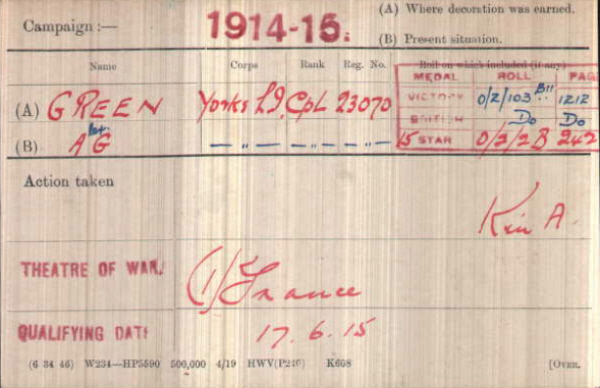 (A) Where decoration was earned.
Campaign :— 1914-15.
(B) Present situation.
Name Corps Rank Reg. No. Roll on which included (if any)
MEDAL ROLL PAGE
(A) GREEN Yorks L.I. Cpl 23070 VICTORY O/2/103 B11 1212
BRITISH Do Do
(B) A G — „ — — „ — — „ — 15 STAR O/2/2B 242
Action taken
Kin A.
THEATRE OF WAR. (1) France
QUALIFYING DATE 17.6.15
(6 34 46) W234—HP5590 500,000 4/19 HWV(P240) K608 [OVER.